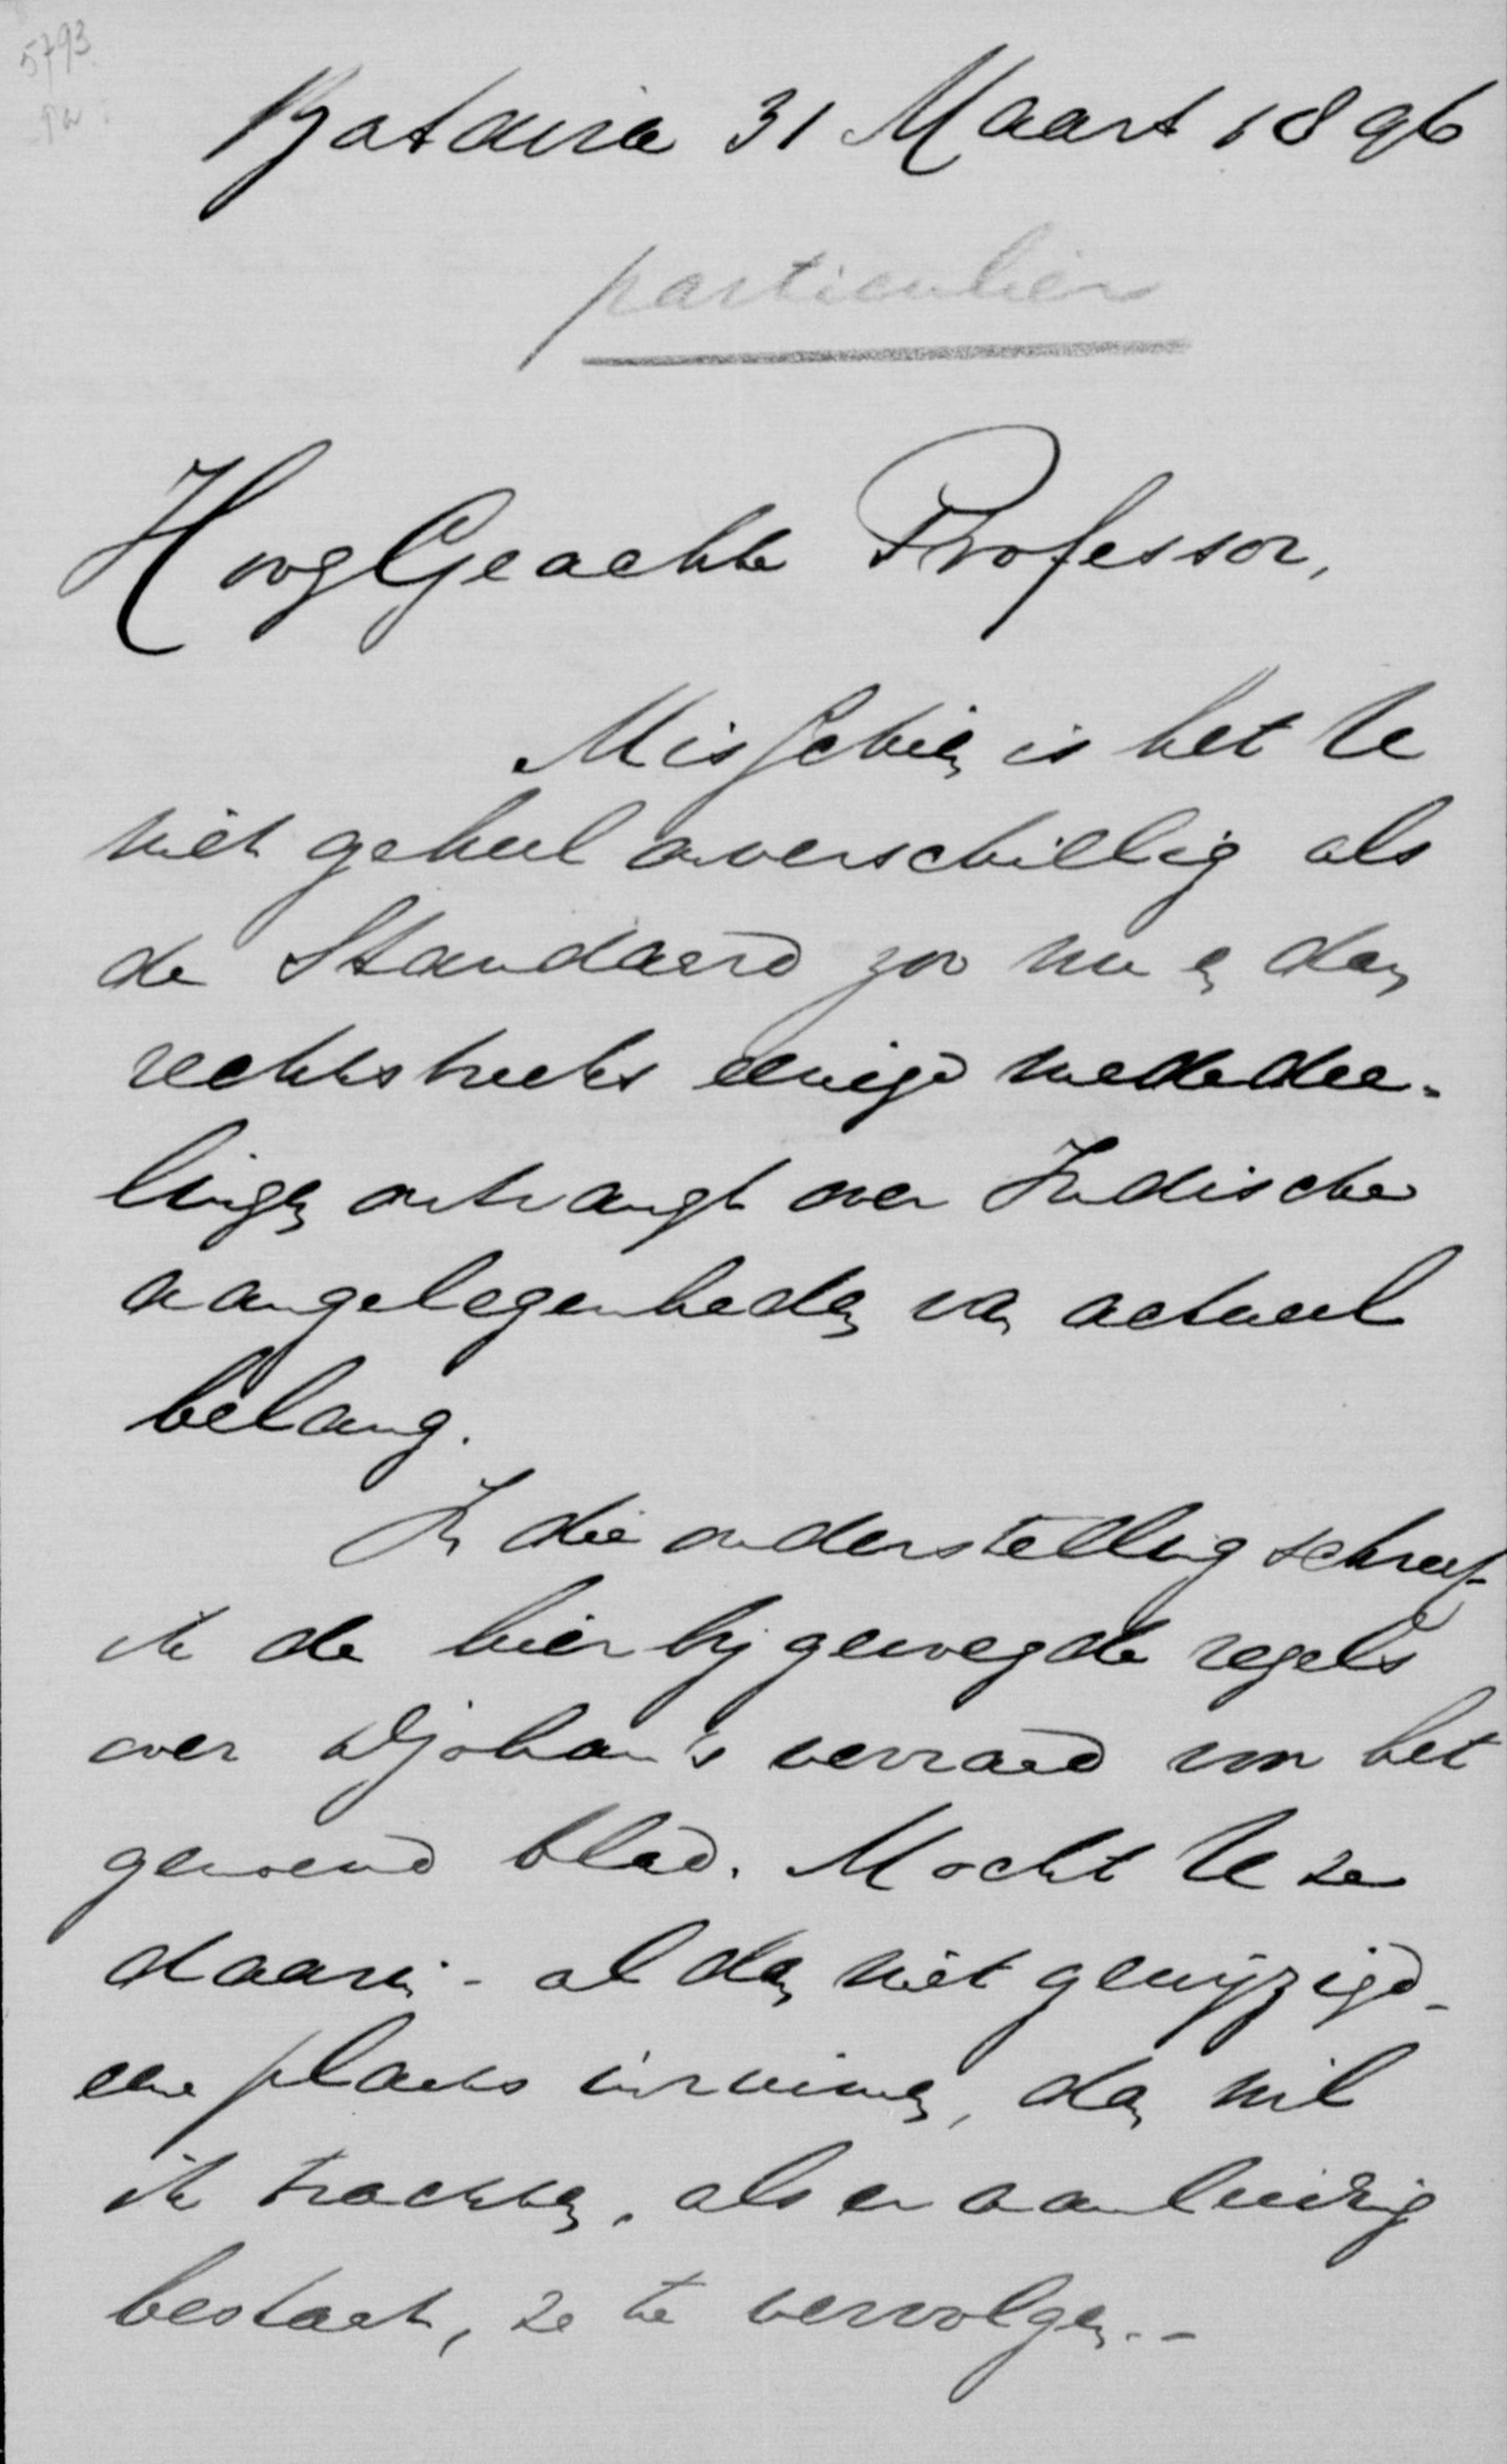 5793
Batavia 31 Maart 1896
particulier
HoogGeachte Professor,
Misschien is het U
niet geheel onverschillig als
de Standaard zoo nu en dan
rechtstreeks eenige mededee-
lingen ontvangt over Indische
aangelegenheden van actueel
belang.
In die onderstelling schreef
ik de hierbijgevoegde regels
over Djohan's verraad voor het
genoemd blad. Mocht U ze
daarin - al dan niet gewijzigd -
eene plaats inruimen, dan wil
ik trachten, als er aanleiding
bestaat, ze te vervolgen.-